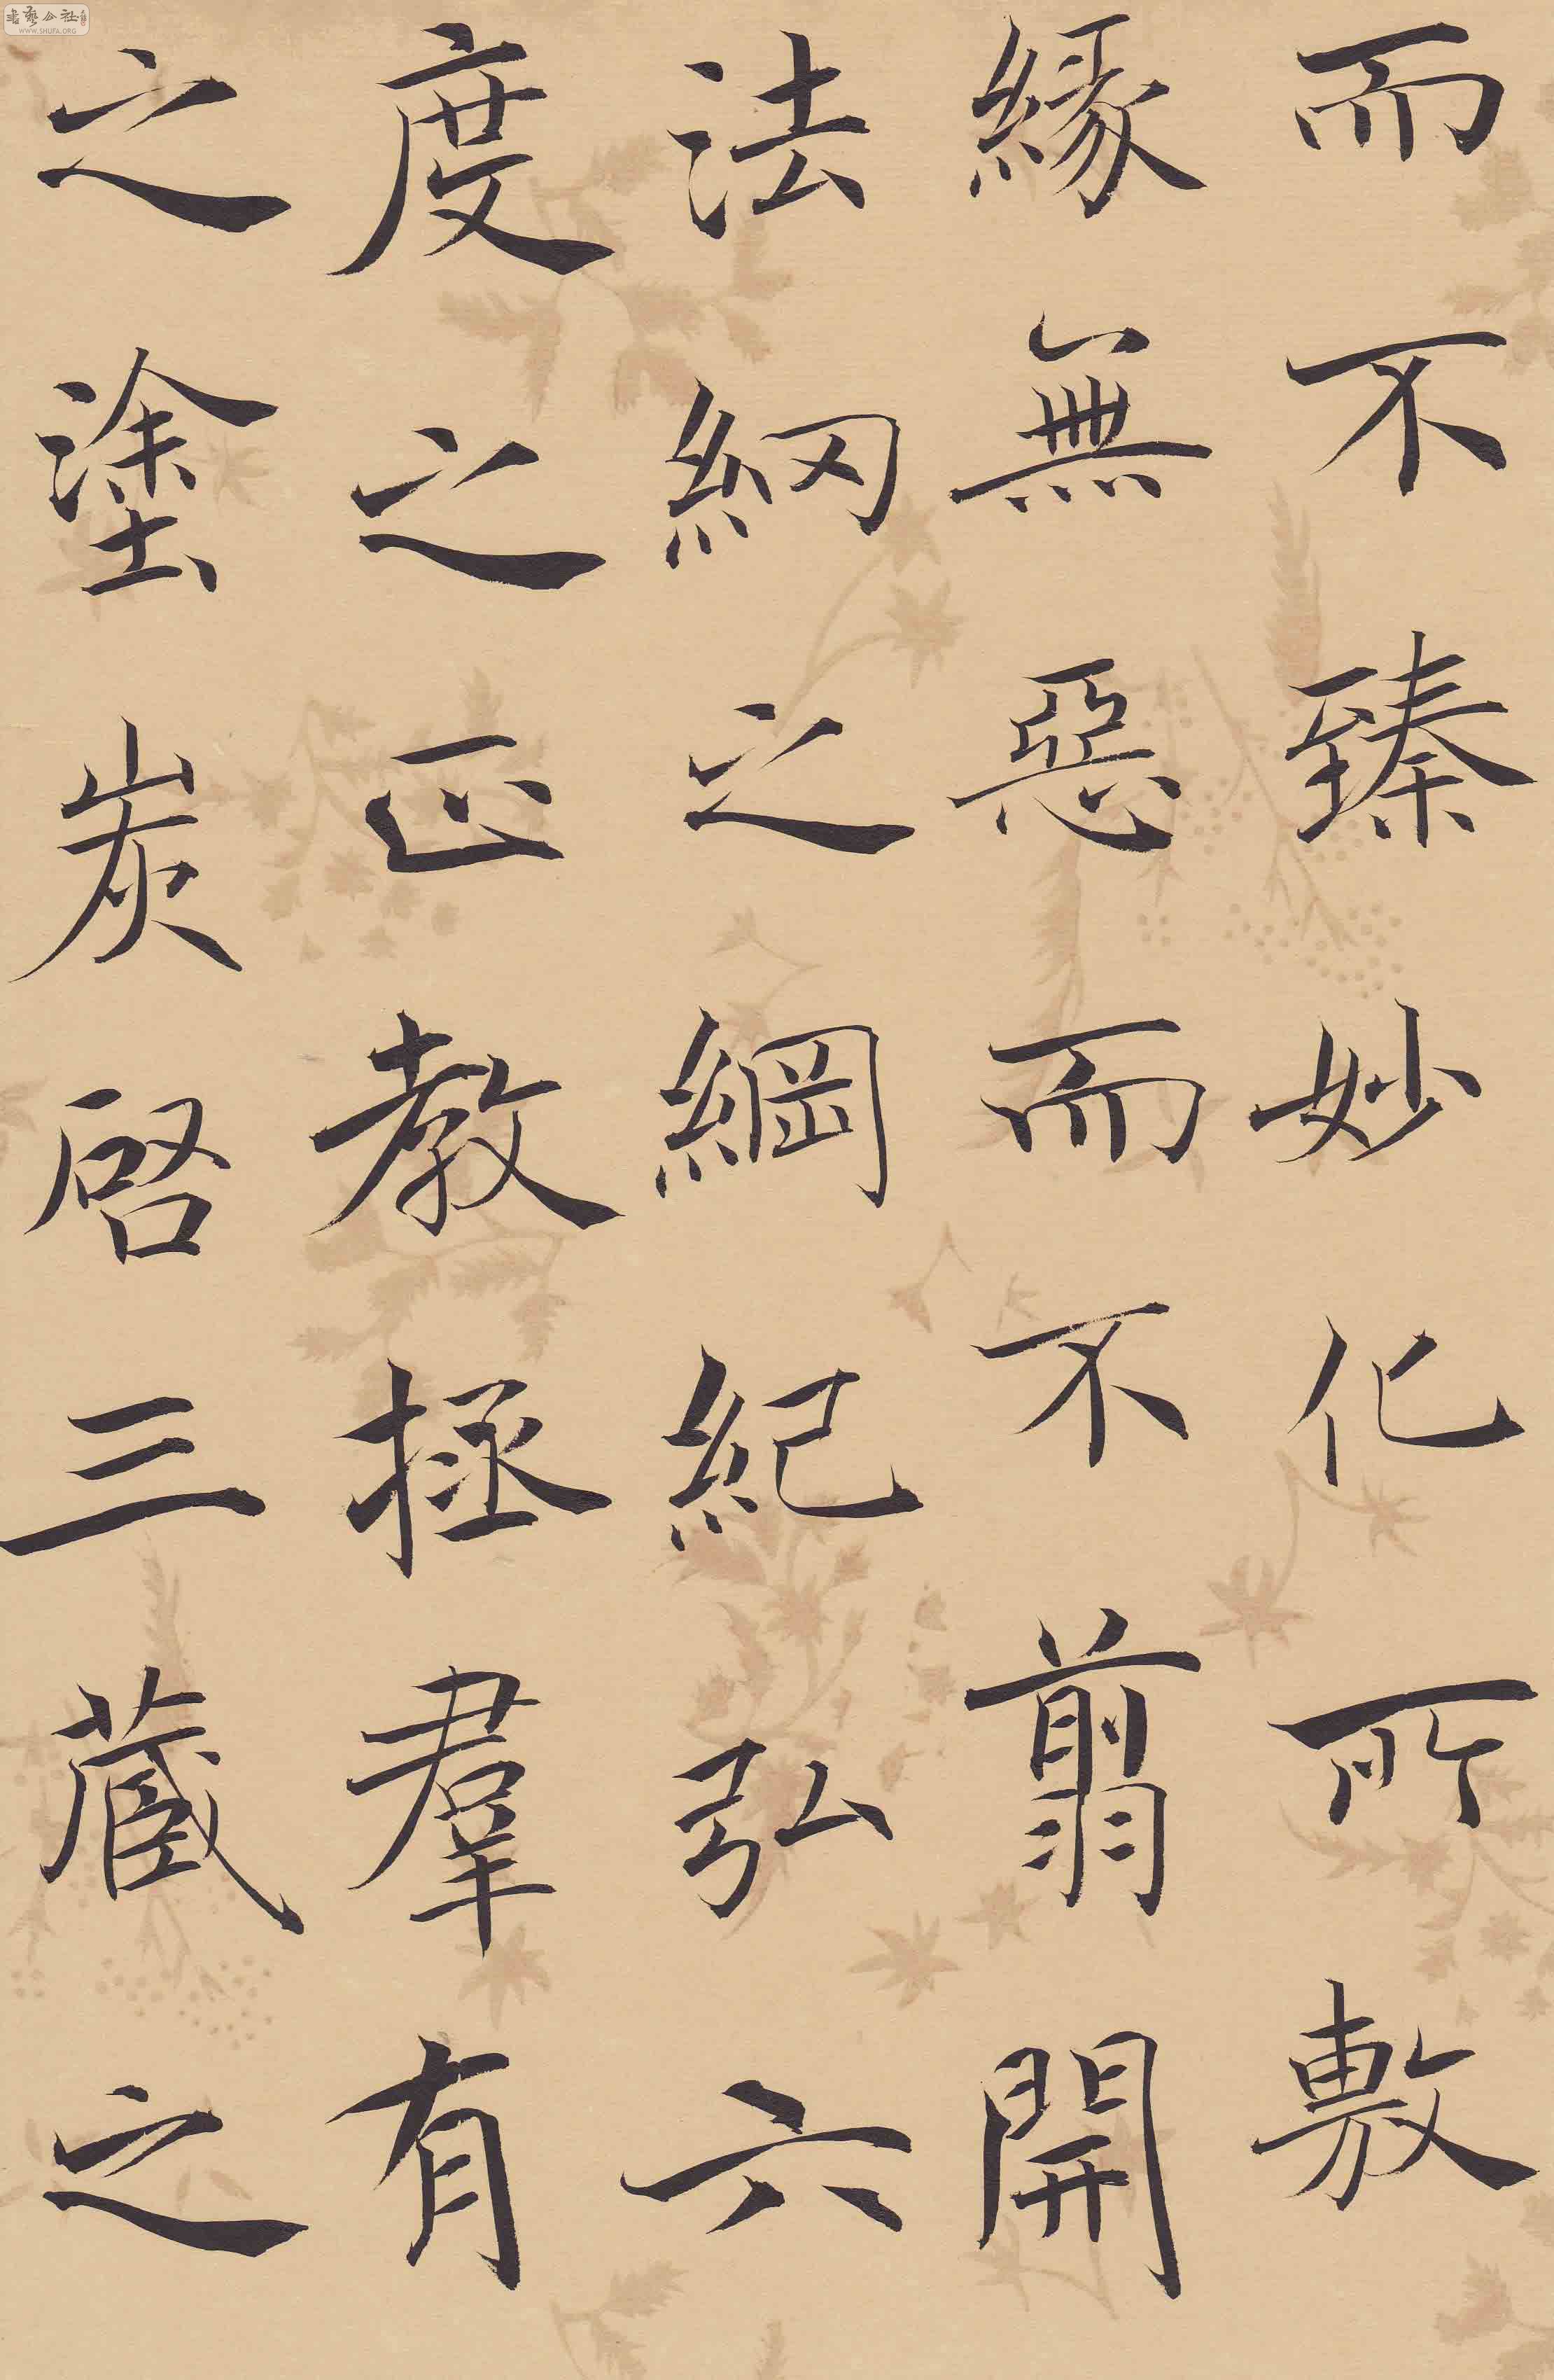 而不臻妙化所敷
緣無惡而不翦開
法網之綱紀弘六
度之正教拯羣有
之塗炭啓三藏之
書藝公社
WWW.SHUFA.ORG